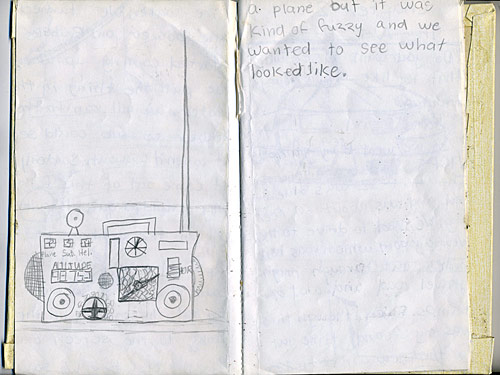 Plane Sub. Heli.
ALTITUDE
a plane but it was
kind of fuzzy and we
wanted to see what
looked like.